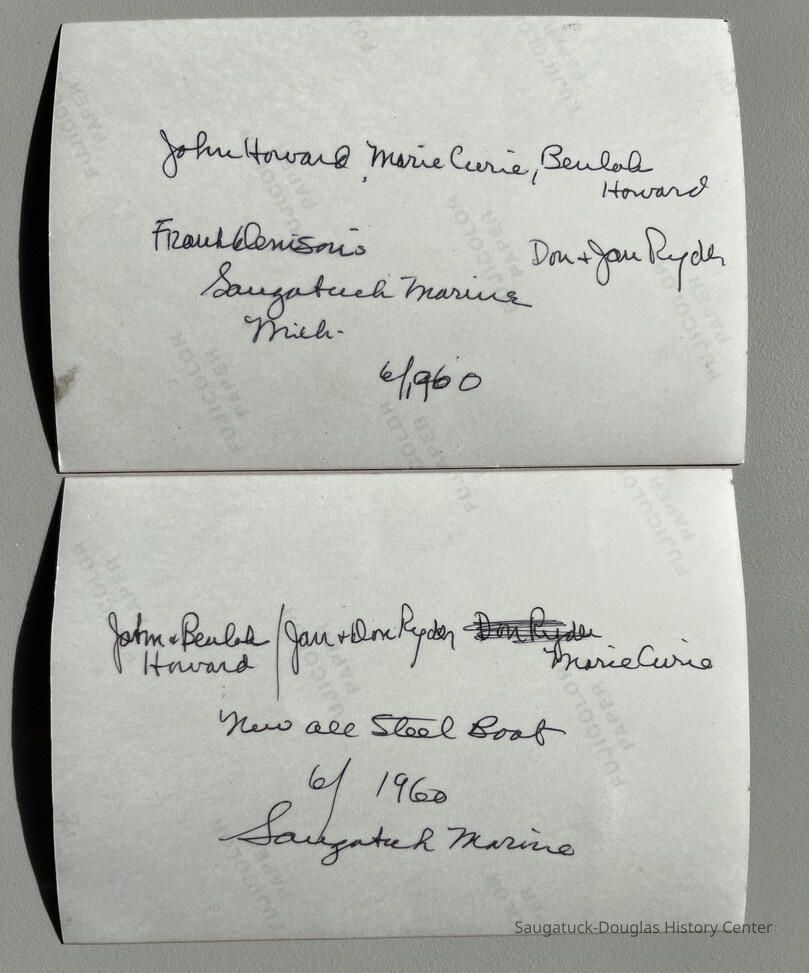 John Howard, Marie Curie, Beulah
Howard
Frank Denison's
Don + Jan Ryder
Saugatuck Marine
Mich-
6/1960
John + Beulah / Jan + Don Ryder Don Ryder
Howard
Marie Curie
New all Steel Boat
6/ 1960
Saugatuck Marine
FUJICOLOR
PAPER
Saugatuck-Douglas History Center